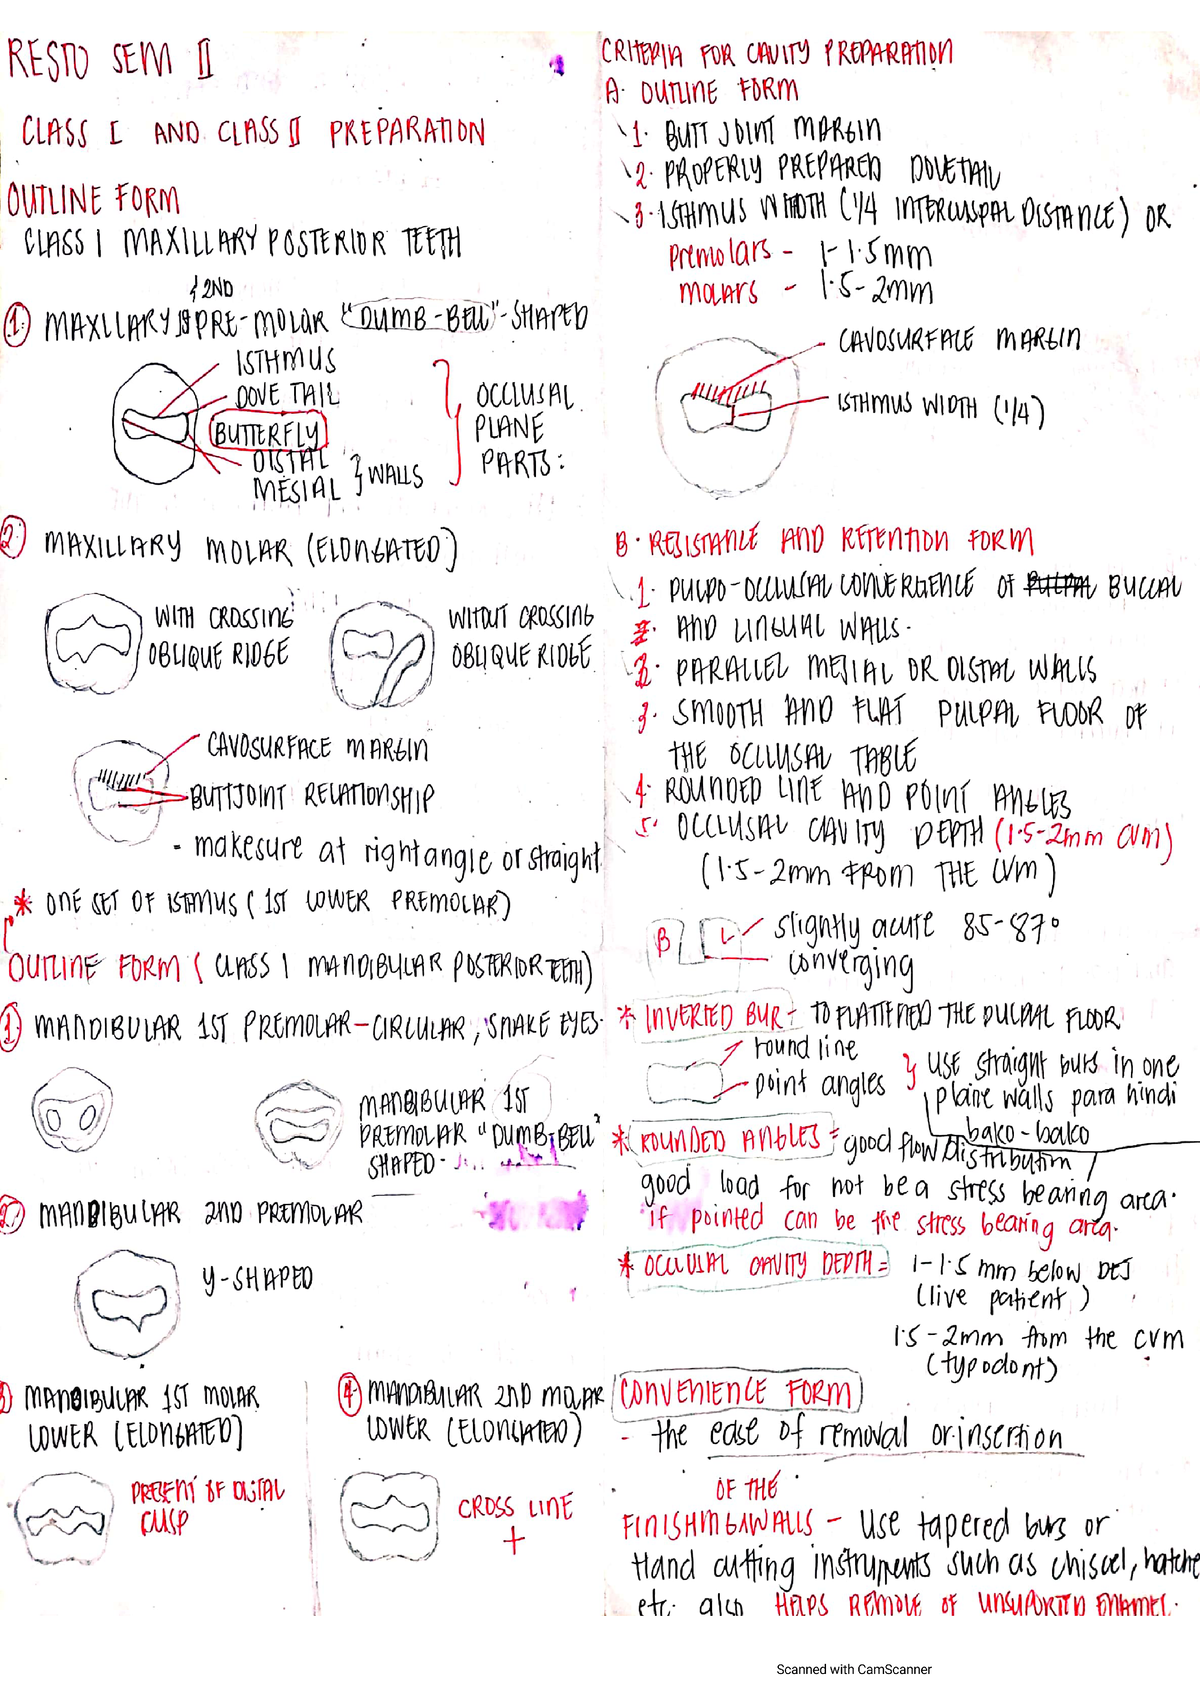 RESTO SEM II
CLASS I AND CLASS II PREPARATION
OUTLINE FORM
CLASS I MAXILLARY POSTERIOR TEETH
& 2ND
1. MAXLLARY 1st PRE-MOLAR "DUMB-BELL"-SHAPED
ISTHMUS
DOVE TAIL
BUTTERFLY
DISTAL
MESIAL } WALLS
OCCLUSAL
PLANE
PARTS:
2. MAXILLARY MOLAR (ELONGATED)
WITH CROSSING
OBLIQUE RIDGE
WITHOUT CROSSING
OBLIQUE RIDGE
CAVOSURFACE MARGIN
BUTTJOINT RELATIONSHIP
- makesure at right angle or straight
* ONE SET OF ISTHMUS (1ST LOWER PREMOLAR)
OUTLINE FORM (CLASS I MANDIBULAR POSTERIOR TEETH)
1 MANDIBULAR 1ST PREMOLAR-CIRCULAR, SNAKE EYES.
MANDIBULAR 1ST
PREMOLAR "DUMB-BELL"
SHAPED-
2 MANDIBULAR 2ND PREMOLAR
Y-SHAPED
3 MANDIBULAR 1ST MOLAR
LOWER (ELONGATED)
PRESENT OF DISTAL
CUSP
4 MANDIBULAR 2ND MOLAR
LOWER (ELONGATED)
CROSS LINE
+
CRITERIA FOR CAVITY PREPARATION
A. OUTLINE FORM
1. BUTT JOINT MARGIN
2. PROPERLY PREPARED DOVETAIL
3. ISTHMUS WIDTH (1/4 INTERCUSPAL DISTANCE) OR
premolars - 1-1.5mm
molars - 1.5-2mm
CAVOSURFACE MARGIN
ISTHMUS WIDTH (1/4)
B. RESISTANCE AND RETENTION FORM
1. PULPO-OCCLUSAL CONVERGENCE OF BUCCAL
AND LINGUAL WALLS.
2. PARALLEL MESIAL OR DISTAL WALLS
3. SMOOTH AND FLAT PULPAL FLOOR OF
THE OCCLUSAL TABLE
4. ROUNDED LINE AND POINT ANGLES
5. OCCLUSAL CAVITY DEPTH (1.5-2mm CVM)
(1.5-2mm FROM THE CVM)
B L
slightly acute 85-87°
converging
* INVERTED BUR - TO FLATTENED THE PULPAL FLOOR
round line
point angles
use straight burs in one
plane walls para hindi
bako-bako
* ROUNDED ANGLES = good flow/distribution /
good load for not be a stress bearing area.
if pointed can be the stress bearing area.
* OCCLUSAL CAVITY DEPTH = 1-1.5 mm below DEJ
(live patient)
1.5-2mm from the CVM
(typodont)
CONVENIENCE FORM
- the ease of removal or insertion
OF THE
FINISHING WALLS - Use tapered burs or
Hand cutting instruments such as chiscel, hatche
etc. also HELPS REMOVE OF UNSUPORTED ENAMEL.
Scanned with CamScanner